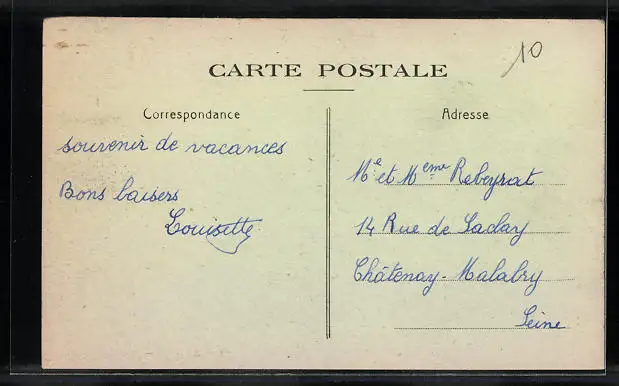 10
CARTE POSTALE
Correspondance
Adresse
souvenir de vacances
Bons baisers
Louisette
Me et Meme Rebeyrat
14 Rue de Saclay
Châtenay-Malabry
Seine